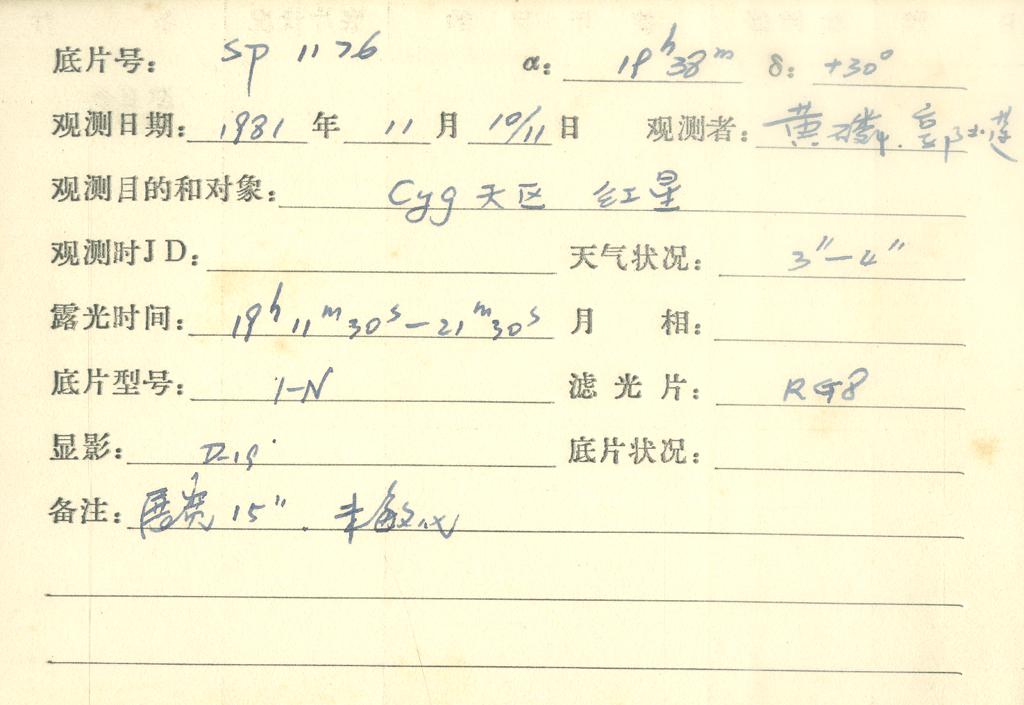 底片号: sp 1176 α: 19ʰ38ᵐ δ: +30°
观测日期: 1981 年 11 月 10/11 日 观测者: 黄磷
观测目的和对象: Cyg 天区 红星
观测时JD: 天气状况: 3"—4"
露光时间: 19ʰ11ᵐ30ˢ—21ᵐ30ˢ 月 相:
底片型号: I-N 滤光片: RG8
显影: D-19 底片状况:
备注: 展宽 15". 未敏化